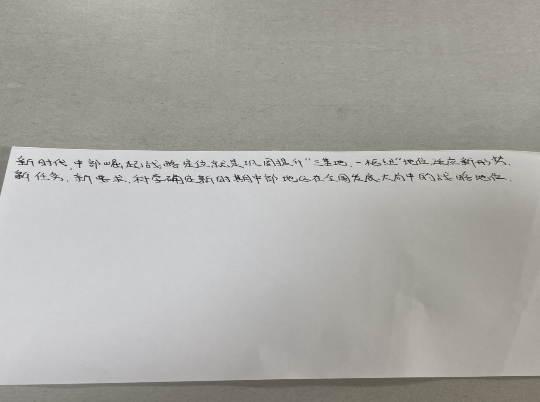 新时代,中部崛起战略定位就是巩固提升“三基地、一枢纽”地位,适应新形势、
新任务、新要求,科学确定新时期中部地区在全国发展大局中的战略地位。